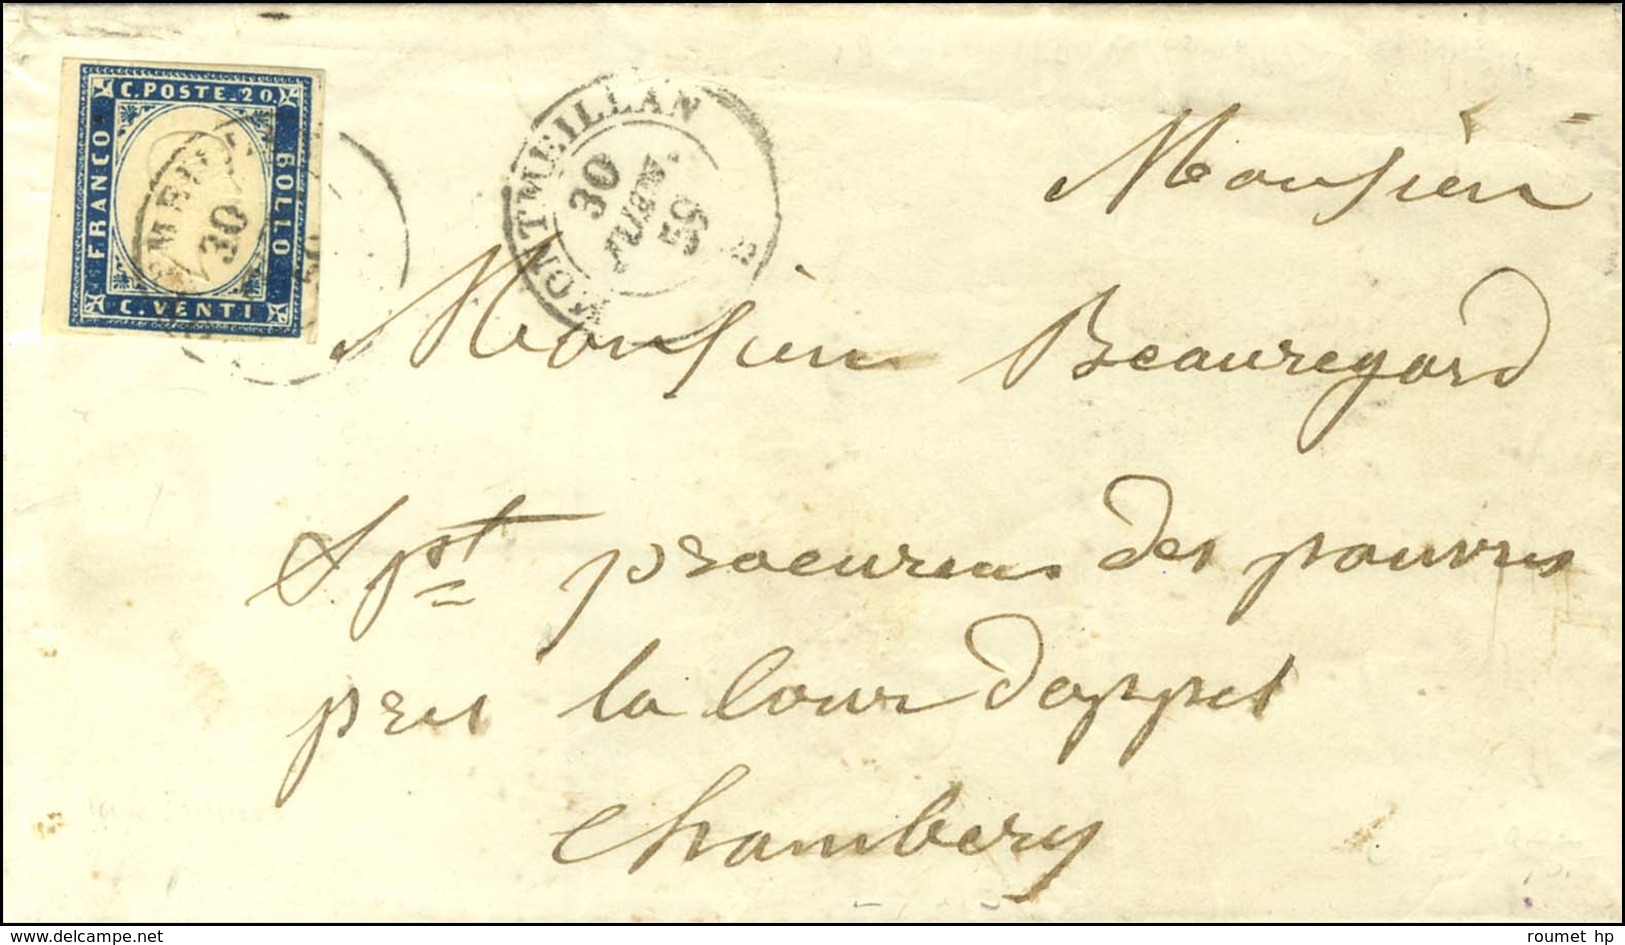 C. POSTE. 20.
FRANCO
BOLLO
C. VENTI
30
MONTMEILLAN
30
Monsieur
Monsieur Beauregard
Spst procureur des pauvres
pres la Cour d'appel
Chambery
roumet hp